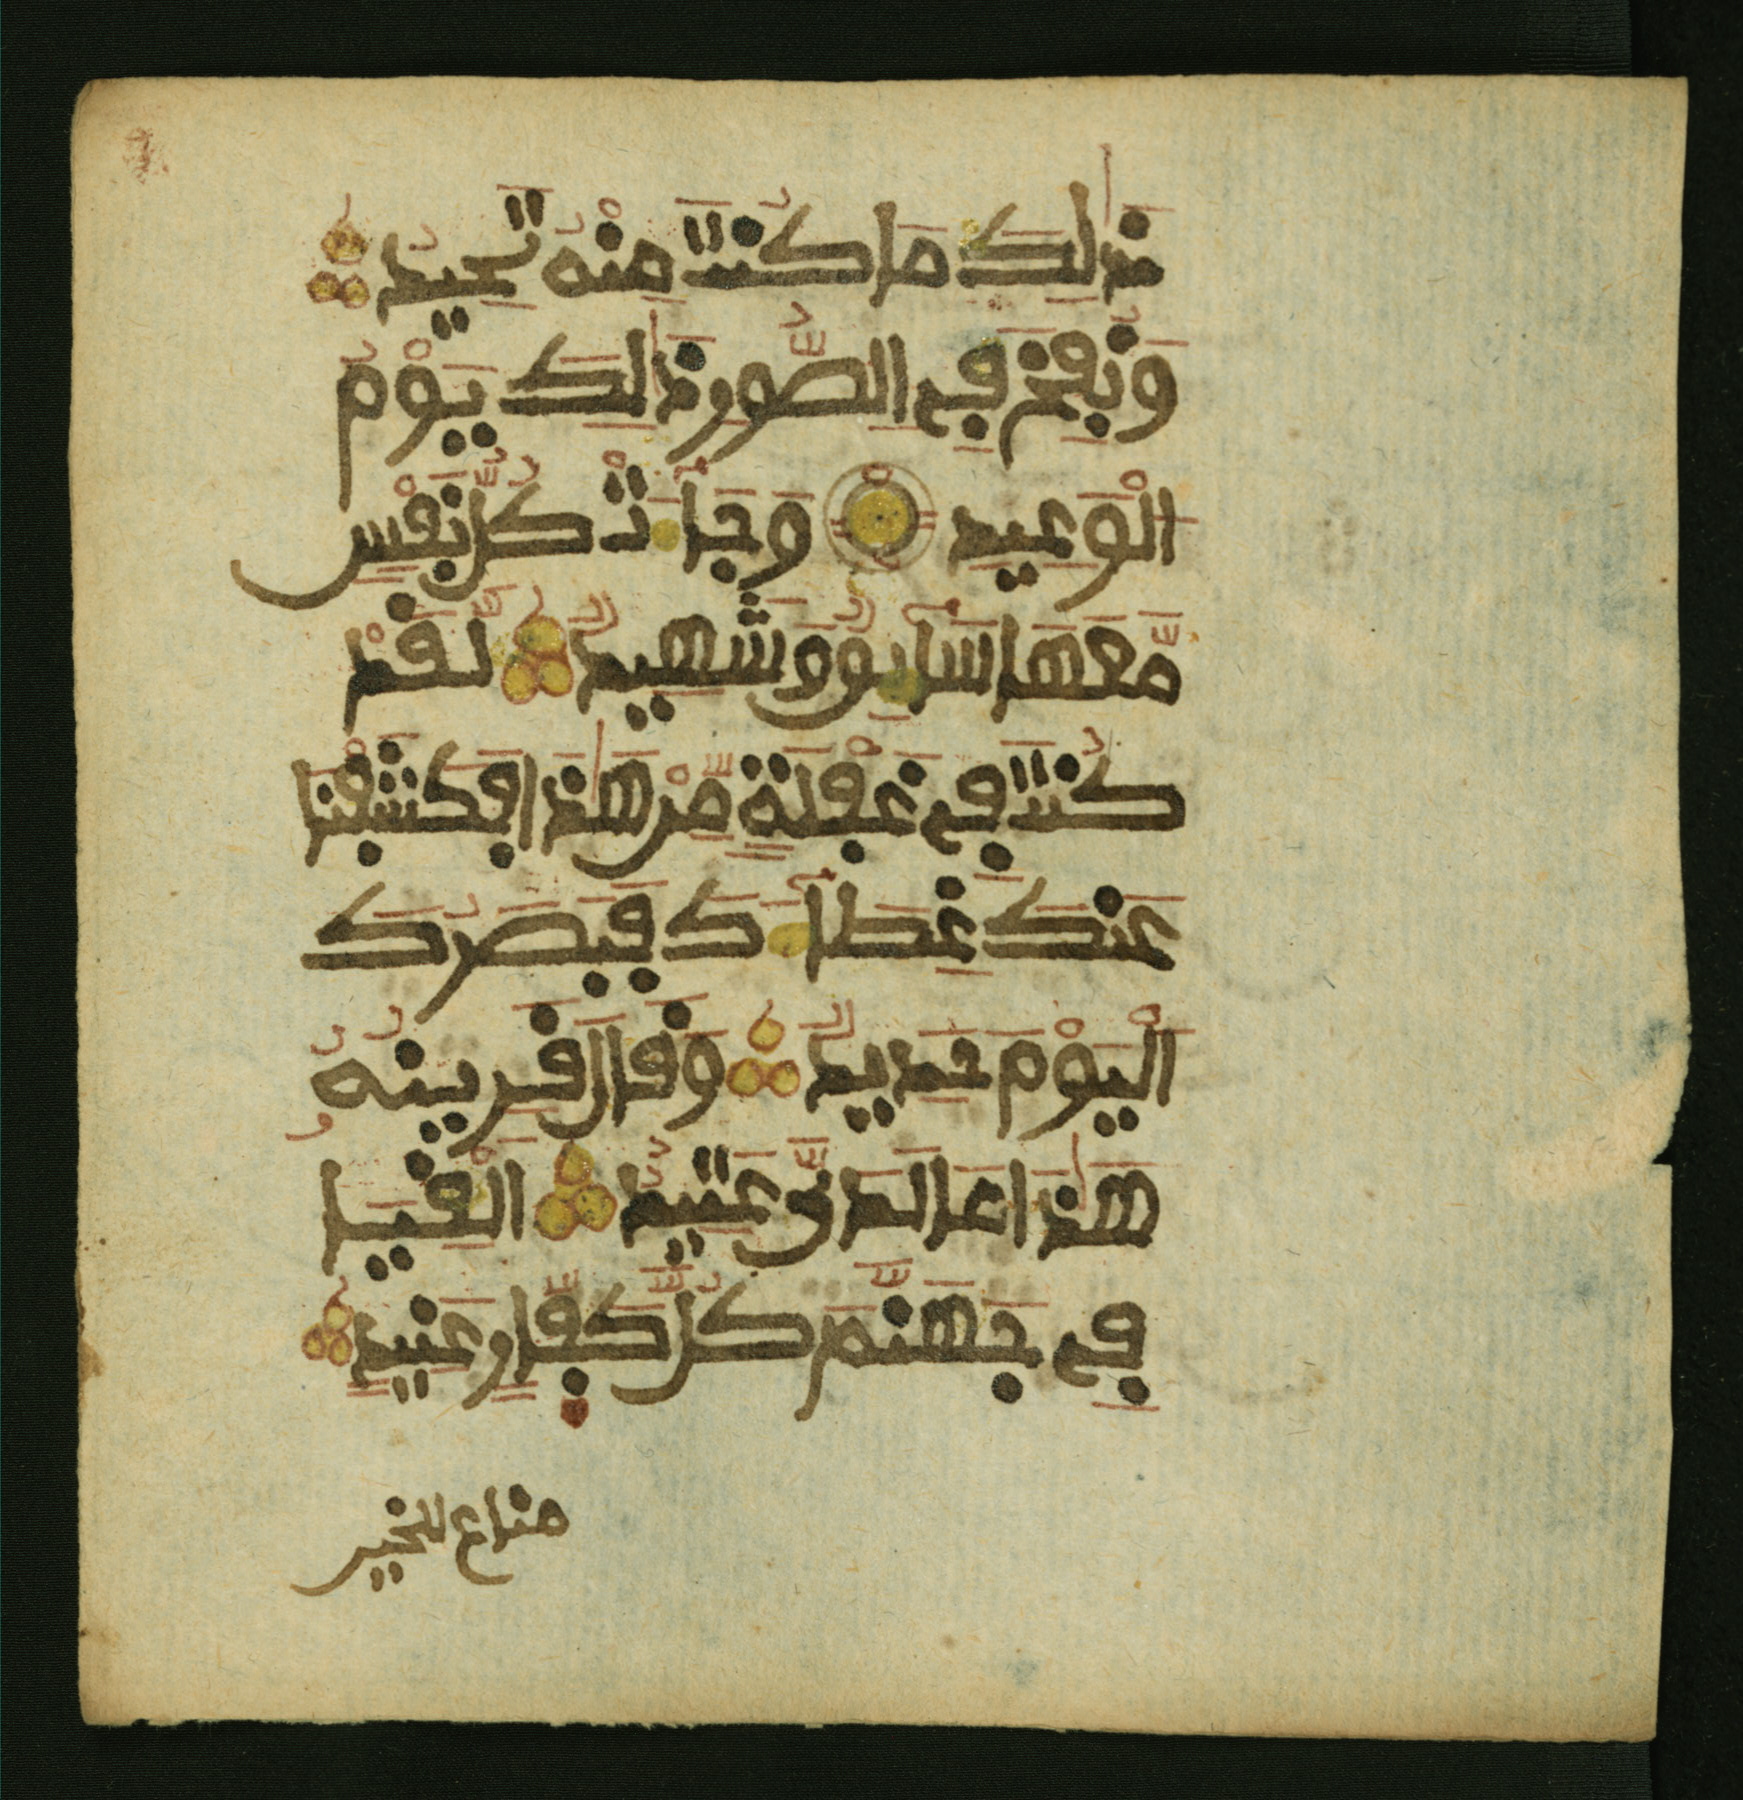 ذَٰلِكَ مَا كُنتَ مِنْهُ تَحِيدُ
وَنُفِخَ فِي الصُّورِ ذَٰلِكَ يَوْمُ
الْوَعِيدِ وَجَآءَتْ كُلُّ نَفْسٍ
مَّعَهَا سَآئِقٌ وَشَهِيدٌ لَقَدْ
كُنتَ فِي غَفْلَةٍ مِّنْ هَٰذَا فَكَشَفْنَا
عَنكَ غِطَآءَكَ فَبَصَرُكَ
الْيَوْمَ حَدِيدٌ وَقَالَ قَرِينُهُ
هَٰذَا مَا لَدَيَّ عَتِيدٌ أَلْقِيَا
فِي جَهَنَّمَ كُلَّ كَفَّارٍ عَنِيدٍ
مناع للخير